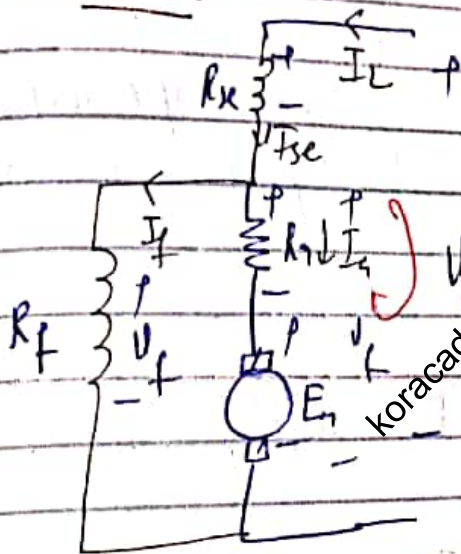 + I_L +
R_se
-
I_se
+ +
I_f R_a I_a V
R_f + -
V_f + V_f
- E_a
- -
koracad